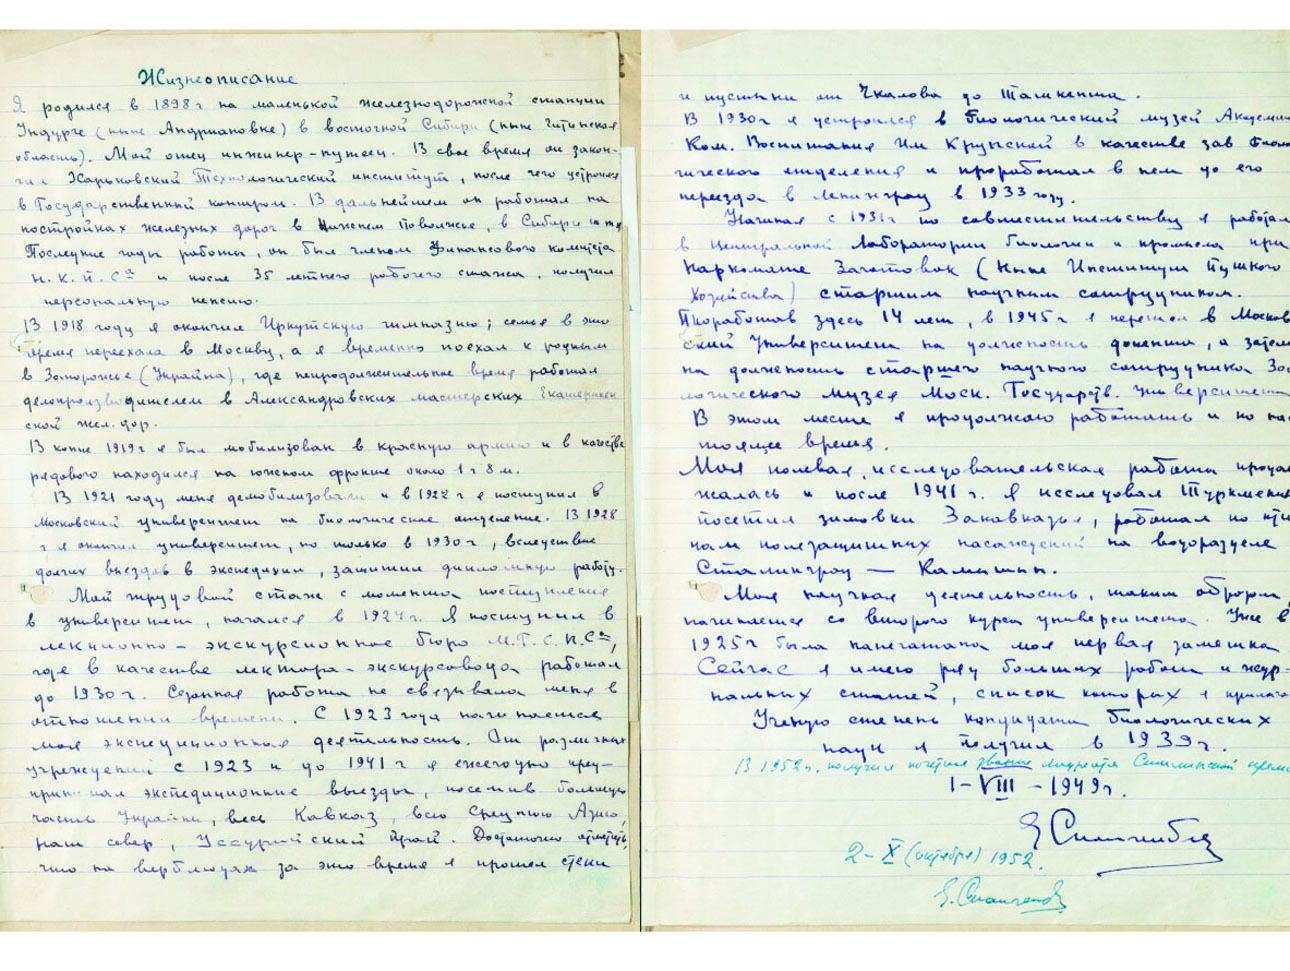 Жизнеописание
Я родился в 1898 г на маленькой железнодорожной станции
Ундурге (ныне Андриановке) в восточной Сибири (ныне Читинская
область). Мой отец инженер-путеец. В свое время он закон-
чил Харьковский Технологический институт, после чего устроился
в Государственный контроль. В дальнейшем он работал на
постройках железных дорог в Нижнем Поволжье, в Сибири и тд
Последние годы работы, он был членом Финансового комитета
Н.К.П.Са и после 35 летнего рабочего стажа, получил
персональную пенсию.
В 1918 году я окончил Иркутскую гимназию; семья в это
время переехала в Москву, а я временно поехал к родным
в Запорожье (Украйна), где непродолжительное время работал
делопроизводителем в Александровских мастерских Екатеринен
ской жел. дор.
В конце 1919 г я был мобилизован в красную армию и в качестве
рядового находился на южном фронте около 1 г 8 м.
В 1921 году меня демобилизовали и в 1922 г я поступил в
Московский университет на биологическое отделение. В 1928
г я окончил университет, но только в 1930 г, вследствие
долгих выездов в экспедиции, защитил дипломную работу.
Мой трудовой стаж с момента поступления
в университет, начался в 1924 г. Я поступил в
лекционно-экскурсионное бюро М.Г.С.П.Са,
где в качестве лектора-экскурсовода работал
до 1930 г. Сезонная работа не связывала меня в
отношении времени. С 1923 года начинается
моя экспедиционная деятельность. От различных
учреждений с 1923 и до 1941 г я ежегодно пред-
принимал экспедиционные выезды, посетив большую
часть Украйны, весь Кавказ, всю Среднюю Азию,
наш север, Уссурийский край. Достаточно отметить,
что на верблюдах за это время я прошел степи
и пустыни от Чкалова до Ташкента.
В 1930 г я устроился в Биологический музей Академии
Ком. Воспитания Им Крупской в качестве зав Биоло
гического отделения и проработал в нем до его
переезда в Ленинград в 1933 году.
Начиная с 1931 г по совместительству я работал
в Центральной Лаборатории биологии и промысла при
Наркомате Заготовок (Ныне Институт Пушного
Хозяйства) старшим научным сотрудником.
Проработав здесь 14 лет, в 1945 г я перешел в Москов
ский Университет на должность доцента, а затем
на должность старшего научного сотрудника Зоо
логического музея Моск. Государств. Университета
В этом месте я продолжаю работать и по нас
тоящее время.
Моя полевая, исследовательская работа продол
жалась и после 1941 г. Я исследовал Туркмению
посетил зимовки Закавказья, работал по пти
цам полезащитных насаждений на водоразделе
Сталинград — Камышин.
Моя научная деятельность, таким образом,
начинается со второго курса университета. Уже в
1925 г была напечатана моя первая заметка.
Сейчас я имею ряд больших работ и жур-
нальных статей, список которых я прилагаю
Ученую степень кандидата биологических
наук я получил в 1939 г.
В 1952 г. получил почетное звание лауреата Сталинской премии
1-VIII-1949 г.
Е Спангенберг
2-X (октября) 1952.
Е. Спангенб